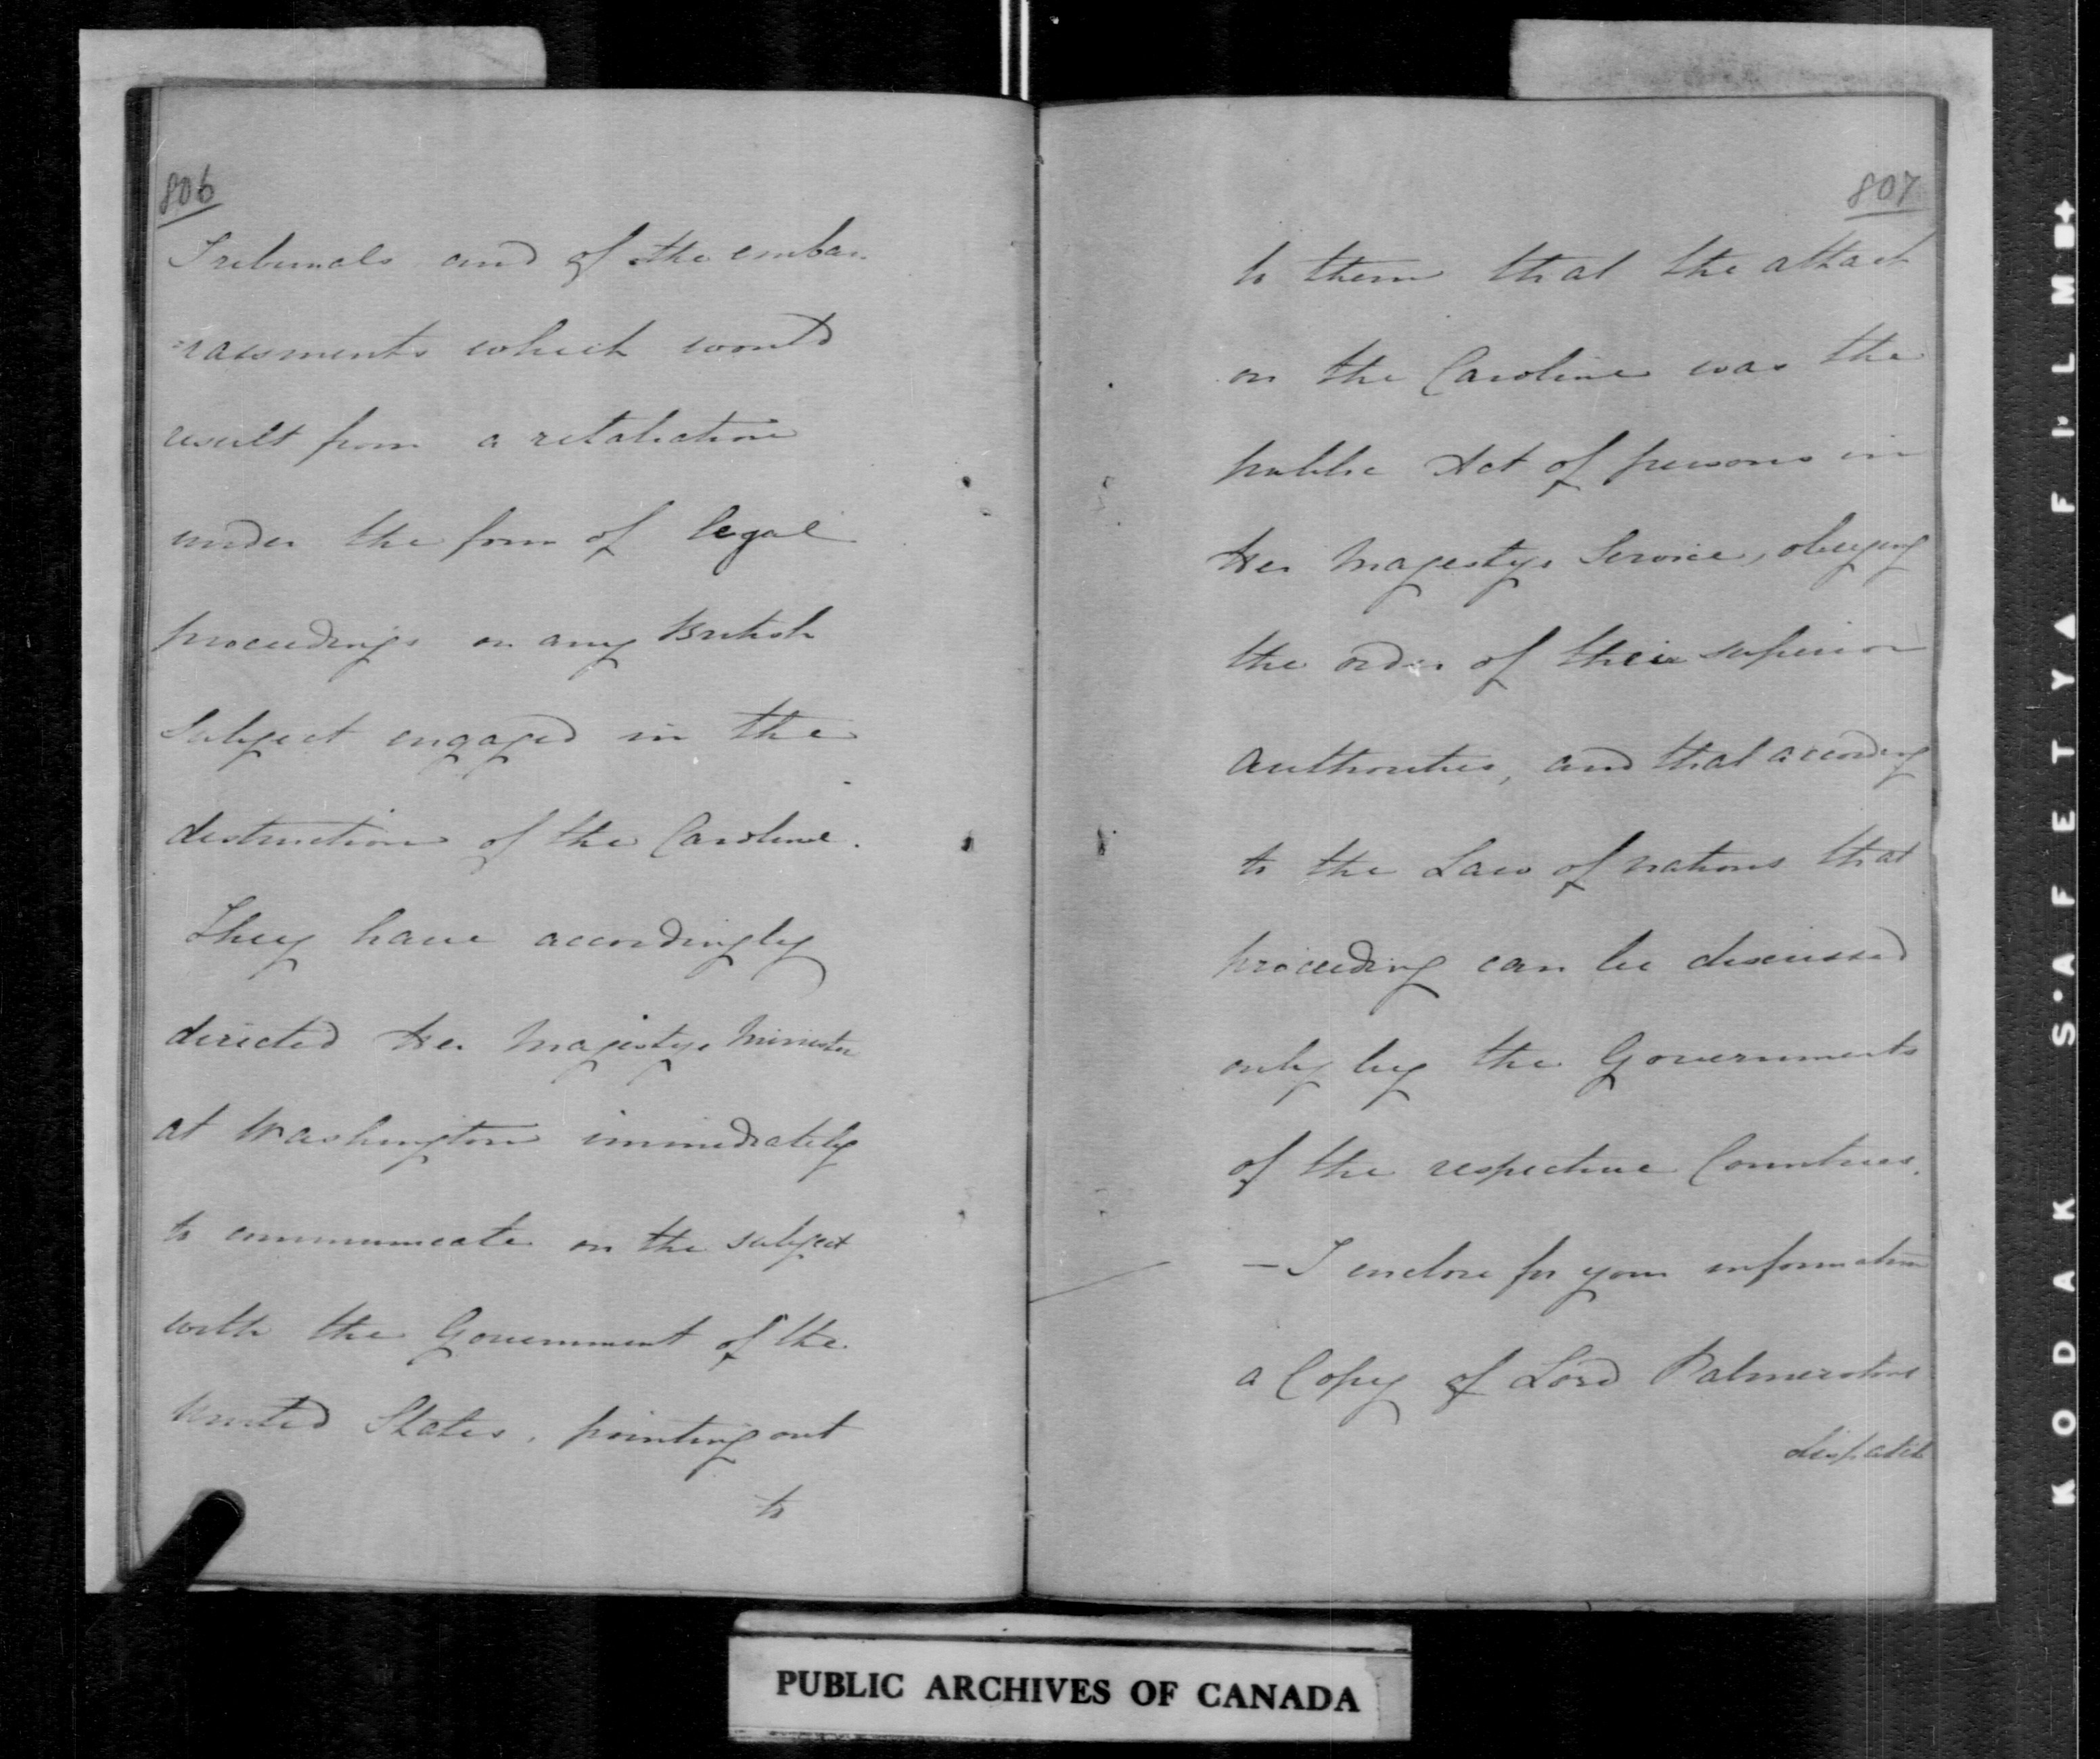 806
Tribunals and of the embar-
=rassments which would
result from a retaliation
under the form of legal
proceedings on any British
Subject engaged in the
destruction of the Caroline.
They have accordingly
directed Her Majestys Minister
at Washington immediately
to communicate on the subject
with the Government of the
United States, pointing out
to
807
to them that the attack
on the Caroline was the
public Act of persons in
Her Majestys Service, obeying
the order of their superior
authorities, and that according
to the Law of nations that
proceeding can be discussed
only by the Governments
of the respective Countries.
– I enclose for your information
a Copy of Lord Palmerstons
despatch
PUBLIC ARCHIVES OF CANADA
KODAK SAFETY FILM